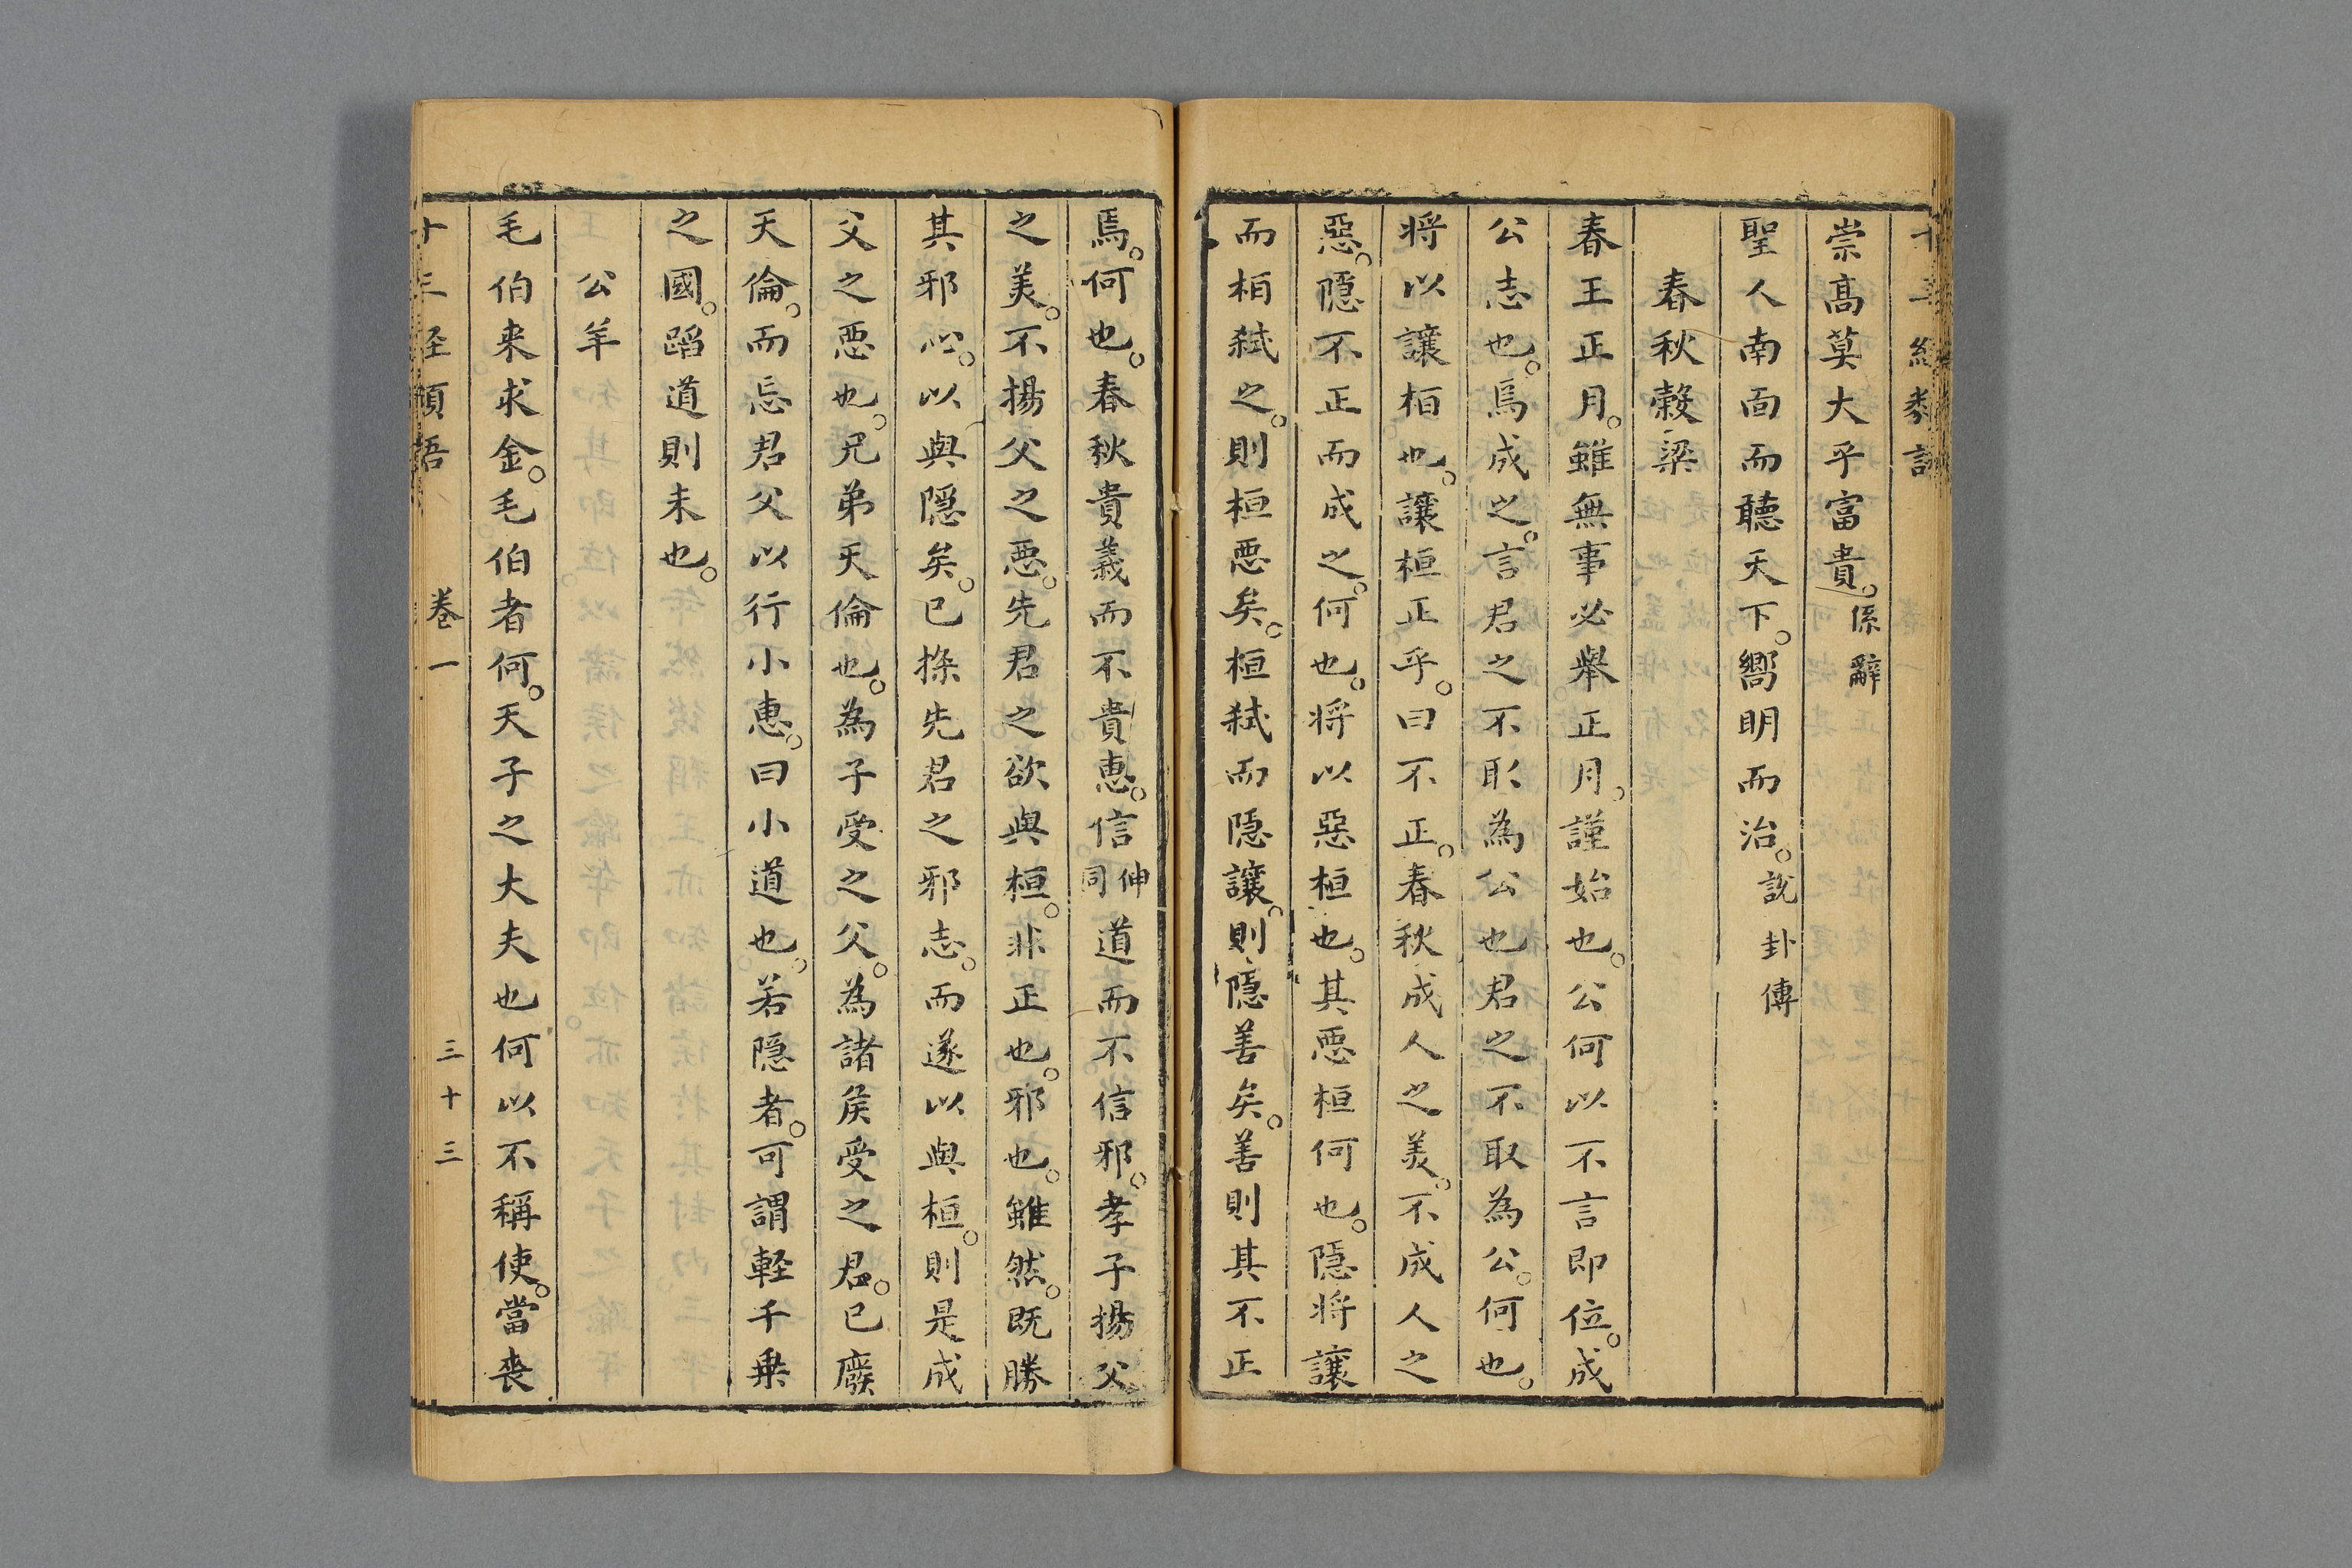 崇髙莫大乎富貴。係辭
聖人南面而聽天下。嚮明而治。說卦傳
春秋糓梁
春王正月。雖無事必舉正月。謹始也。公何以不言即位。成
公志也。焉成之。言君之不取為公也君之不取為公。何也。
将以讓桓也。讓桓正乎。曰不正。春秋成人之美。不成人之
惡。隱不正而成之。何也。将以惡桓也。其惡桓何也。隱将讓
而桓弑之。則桓惡矣。桓弑而隱讓。則隱善矣。善則其不正
焉。何也。春秋貴義而不貴惠。信伸同道而不信邪。孝子揚父
之美。不揚父之惡。先君之欲與桓。非正也。邪也。雖然。既勝
其邪心。以與隱矣。已探先君之邪志。而遂以與桓。則是成
父之惡也。兄弟天倫也。為子受之父。為諸矦受之君。已廢
天倫。而忘君父以行小惠。曰小道也。若隱者。可謂軽千乗
之國。蹈道則未也。
公羊
毛伯来求金。毛伯者何。天子之大夫也何以不稱使。當喪
卷一
三十三